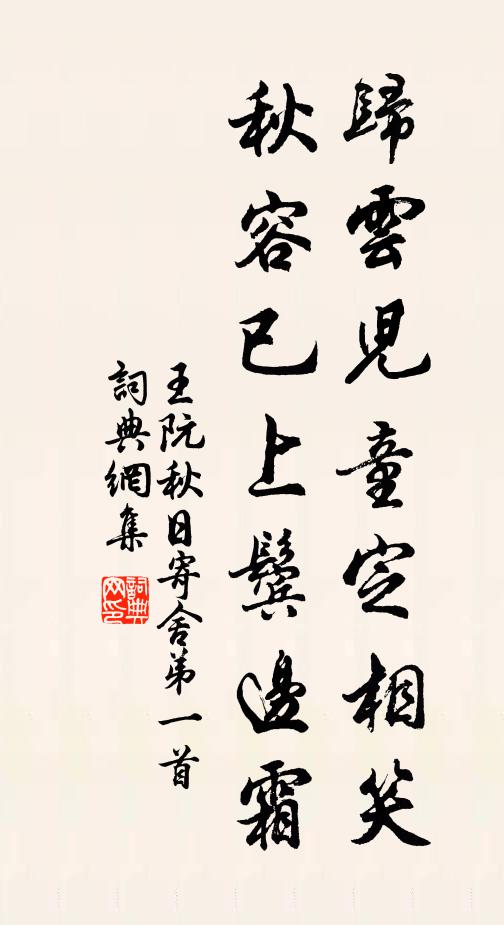 歸雲兒童定相笑
秋容已上鬢邊霜
王阮秋日寄舍弟一首
詞典網集
詞典
网印